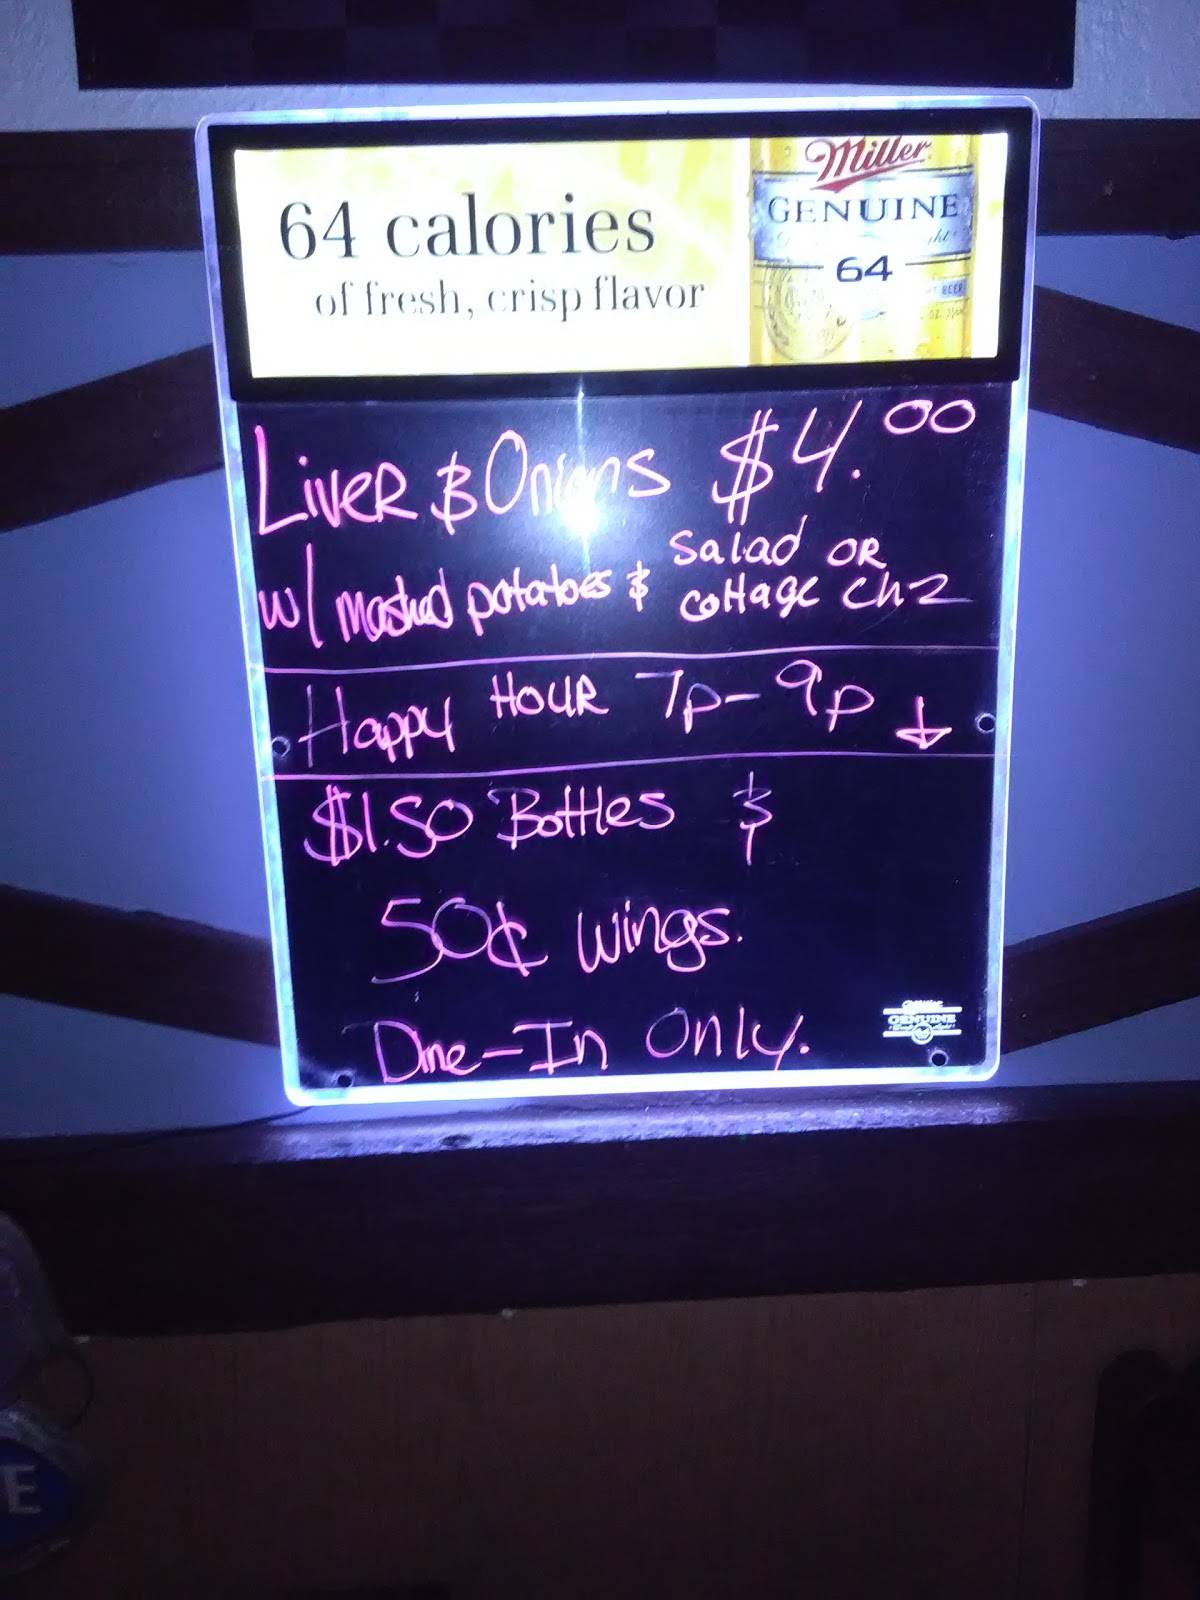 64 calories
of fresh, crisp flavor
Miller
GENUINE
64
BEER
Liver & Onions $4.00
w/ mashed potatoes & salad OR
cottage chz
Happy HOUR 7p-9p ↓
$1.50 Bottles &
50¢ wings.
Dine-In Only.
Miller
GENUINE
E